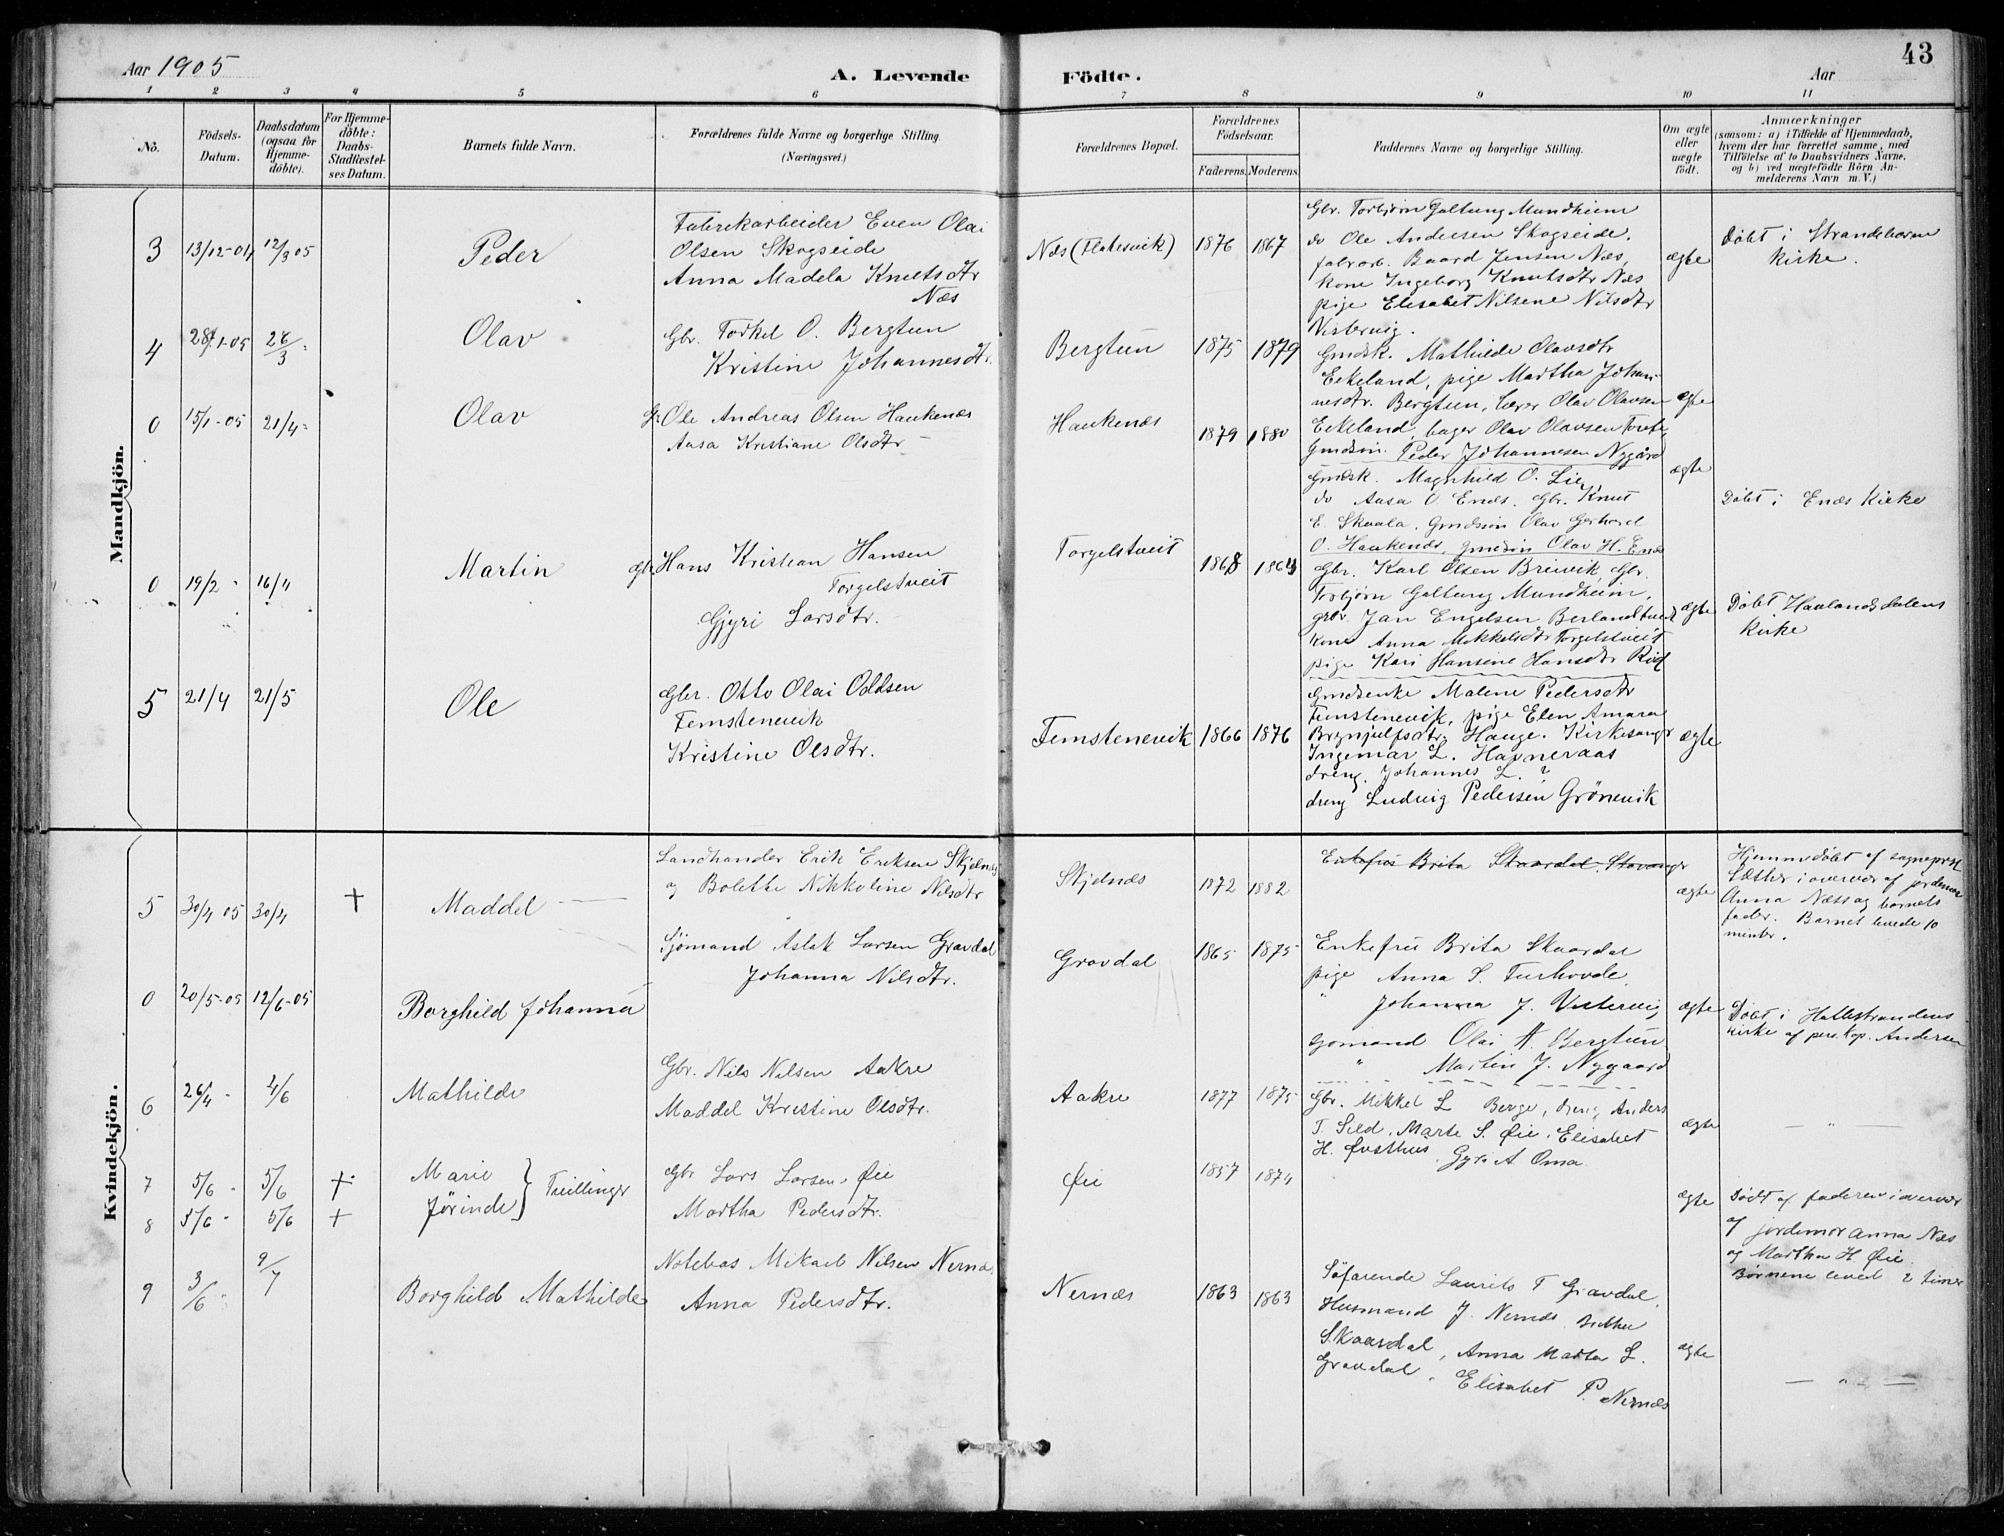 43
Aar 1905
A. Levende
Födte.
Aar
1 2 3 4 5 6 7 8 9 10 11
No.
Födsels-
Datum.
Daabsdatum
(ogsaa for
Hjemme-
döbte).
For Hjemme-
döbte:
Daabs-
Stadfæstel-
ses Datum.
Barnets fulde Navn.
Forældrenes fulde Navne og borgerlige Stilling.
(Næringsvei.)
Forældrenes Bopæl.
Forældrenes
Födselsaar.
Faderens. Moderens.
Faddernes Navne og borgerlige Stilling.
Om ægte
eller
uægte
födt.
Anmærkninger
(saasom: a) i Tilfælde af Hjemmedaab,
hvem der har forrettet samme, med
Tilföielse af to Daabsvidners Navne,
og b) ved uægtefödte Börn An-
melderens Navn m. V.)
Mandkjön.
3 13/12-04 12/3 05
Peder
Fabrikarbeider Even Olai
Olsen Skogseide
Anna Madela Knutsdtr
Næs
Næs (Flatesvik) 1876 1867
Gbr. Torbjørn Galtung Mundheim
do Ole Andersen Skogseide,
fabrarb. Baard Jensen Næs,
kone Ingeborg Knutsdtr Næs
pige Elisabet Nilsene Nilsdtr
ægte
Døbt i Strandebarm
Kirke.
4 28/1-05 26/3
Olav
Gbr. Torkel O. Bergtun
Kristine Johannesdtr.
Bergtun 1875 1879
Gmdsk. Mathilde Olavsdtr
Eikeland, pige Martha Johan-
nesdtr. Bergtun, lærer Olav Olavsen
Eikeland, bager Olav Olavsen
Gmdsøn. Peder Johannesen Nygård
ægte
0 15/1-05 21/4
Olav
Ole Andreas Olsen Haukenæs
Aasa Kristiane Olsdtr
Haukenæs 1879 1880
Gmdsk. Magnhild O. Lie,
do Aasa O Enæs. Gbr. Knut
E. Skaala, Gmdssøn Olav Gerhard
O. Haukenæs, gmdsøn Olav H. Enæs
ægte
Døbt i Enæs Kirke
0 19/2 16/4
Martin
Gbr Hans Kristian Hansen
Torgelstveit
Gjyri Larsdtr.
Torgelstveit 1868
Gbr. Karl Olsen Breivik, Gbr.
Torbjørn Galtung Mundheim,
gbr Jan Engelsen
kone Anna Mikkelsdtr Torgelstveit
pige Kari Hansine Hansdtr
ægte
Døbt Haalandsdalens
Kirke
5 21/4 21/5
Ole
Gbr. Otto Olai Oddsen
Femstenevik
Kristine Olsdtr.
Femstenevik 1866 1876
Gmdsenke Malene Pedersdtr
Femstenevik, pige Elen Amara
Brynjulfsdtr. Hauge. Kirkesangr
Ingemar L. Havneraas
dreng. Johannes L. ?
dreng Ludvig Pedersen Grønevik
ægte
Kvindekjön.
5 30/4 05 30/4 +
Maddel
Landhandler Erik Eriksen Skjelnæs
og Bolette Nikkoline Nilsdtr
Skjelnæs 1872 1882
Brita Skaardal
ægte
Hjemmedøbt af sogneprst
Sæther i overvær af jordemor
Anna Næss og barnets
fader. Barnet levede 10
minter.
0 20/5-05 12/6-05
Borghild Johanna
Sjømand Aslak Larsen Gravdal
Johanna Nilsdtr.
Gravdal 1865 1875
Enkefru Brita Skaardal
pige Anna S. Turhovde,
" Johanna J. Vistervig
gbmand Olai A Bergtun
" Martin J. Nygaard
ægte
Døbt i Hatlestrandens
kirke af pers. kap. Andersen
6 26/4 4/6
Mathilde
Gbr. Nils Nilsen Aakre
Maddel Kristine Olsdtr.
Aakre 1877 1875
Gbr. Mikkel L Berge, dreng Anders
T. Sild, Marte S. Øie, Elisabet
H. Øvsthus, Gyri A Oma.
ægte
— " —
7 5/6 5/6 +
Marie
8 5/6 5/6 +
Jørinde } Tvillinger
Gbr Lars Larsen Øie
Martha Pedersdtr.
Øie 1857 1874
ægte
Døbt af faderen i overvær
af jordemor Anna Næs
og Martha H Øie.
Børnene leved 2 timer
9 3/6 9/7
Borghild Mathilde
Notebas Mikael Nilsen Nernæs
Anna Pedersdtr.
Nernæs 1863 1863
Søfarende Laurits T Gravdal,
Husmand J. Nernæs,
Skaardal, Anna Marta L.
Gravdal, Elisabet P. Nernæs
ægte
— " —